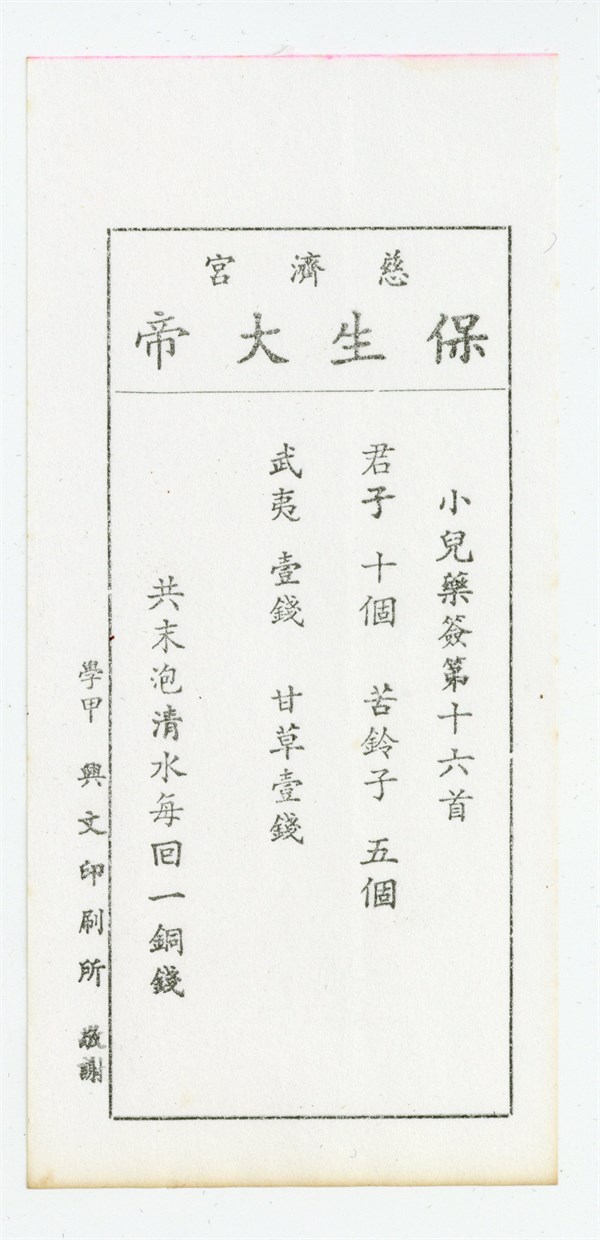 慈濟宮
保生大帝
小兒藥簽第十六首
君子 十個 苦鈴子 五個
武夷 壹錢 甘草壹錢
共末泡清水每回一銅錢
學甲 興文印刷所 敬謝